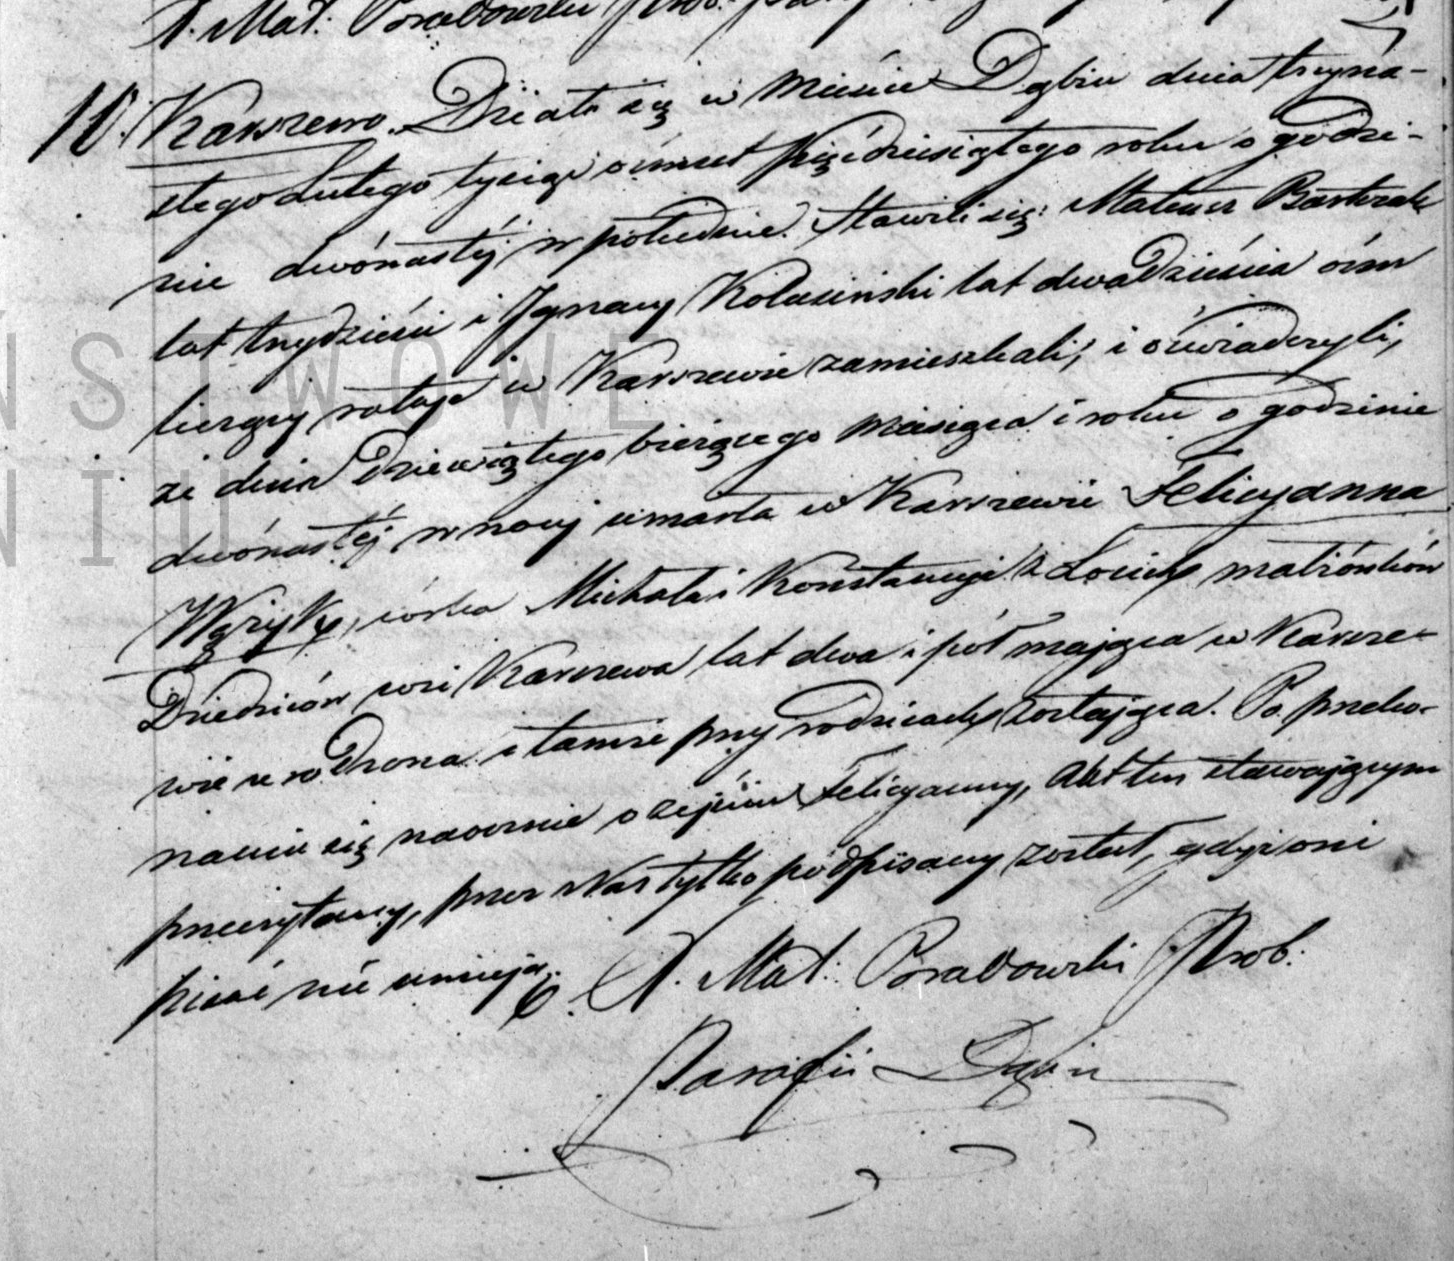 X. Mat. Brabowski Prob.
10. Karszewo. Działo się w Mieście Dąbiu dnia trzyna-
stego Lutego tysiąc ośmset pięćdziesiątego roku o godzi-
nie dwónastéj w południe. Stawili się: Mateusz Bartczak
lat trzydzieści i Ignacy Kolasiński lat dwadzieścia ośm
liczący rataje w Karszewie zamieszkali; i oświadczyli,
że dnia dziewiątego bieżącego miesiąca i roku o godzinie
dwónastéj w nocy umarła w Karszewie Felicyanna
Węzyk, córka Michała i Konstancyi z małżonków
Dziedziców wsi Karszewa lat dwa i pół mająca w Karsze-
wie urodzona i tamże przy rodzicach zostająca. Po przeko-
naniu się naocznie o zejściu Felicyanny, Akt ten stawającym
przeczytany, przez Nas tylko podpisany został, gdyż oni
pisać nie umieją. X. Mat. Brabowski Prob.
Parafii Dąbia
ŃSTWOWE
NIU